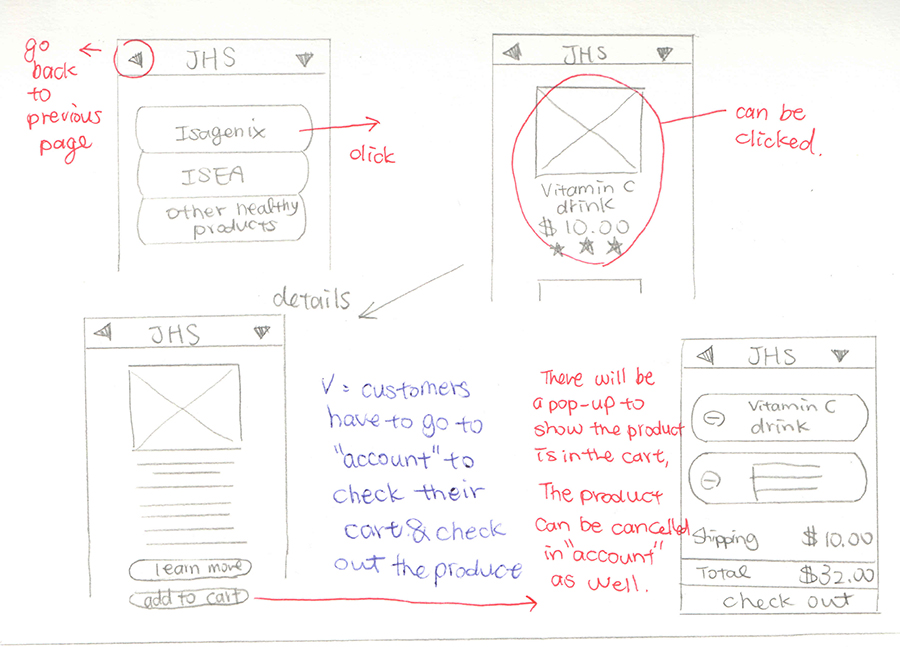 go
back
to
previous
page
JHS
Isagenix
click
ISEA
other healthy
products
JHS
Vitamin C
drink
$10.00
can be
clicked.
details
JHS
learn more
add to cart
V = customers
have to go to
"account" to
check their
cart & check
out the product
There will be
a pop-up to
show the product
is in the cart,
The product
can be cancelled
in "account"
as well.
JHS
Vitamin C
drink
Shipping $10.00
Total $32.00
check out